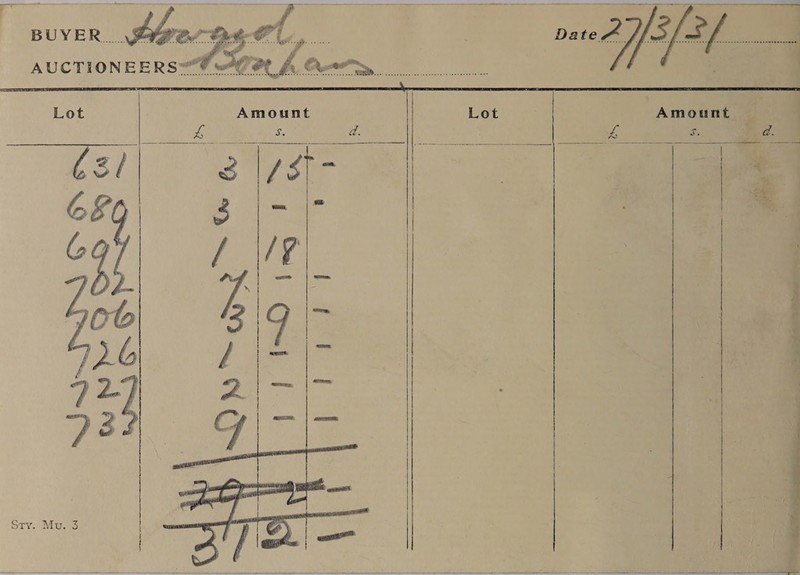 BUYER Howard Date 27/3/31
AUCTIONEERS Bonhams
Lot Amount Lot Amount
£ s. d. £ s. d.
631 3 15 -
689 3 - -
697 1 18
702 7 - -
706 3 9 -
726 1 - -
727 2 - -
733 9 - -
29 2 -
31 2 -
STY. MU. 3